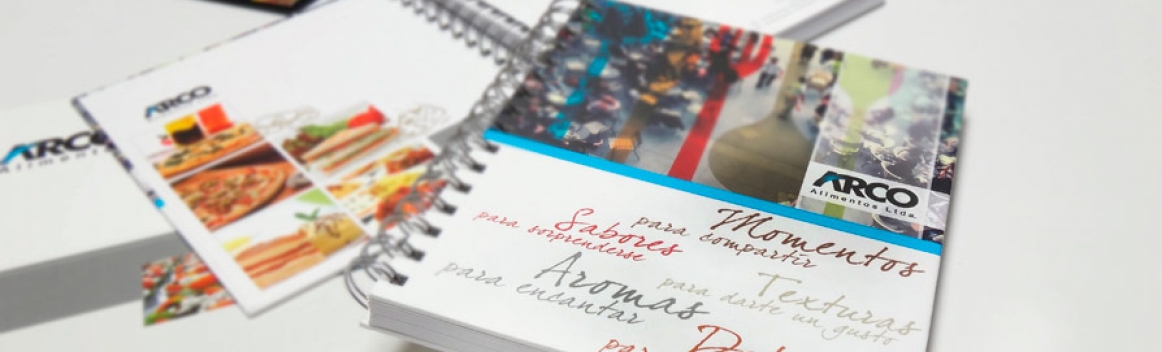 ARCO
ARCO
Alimentos
ARCO
Alimentos Ltda.
Momentos
para compartir
Sabores
para sorprenderse
Aromas
para encantar
Texturas
para darte un gusto